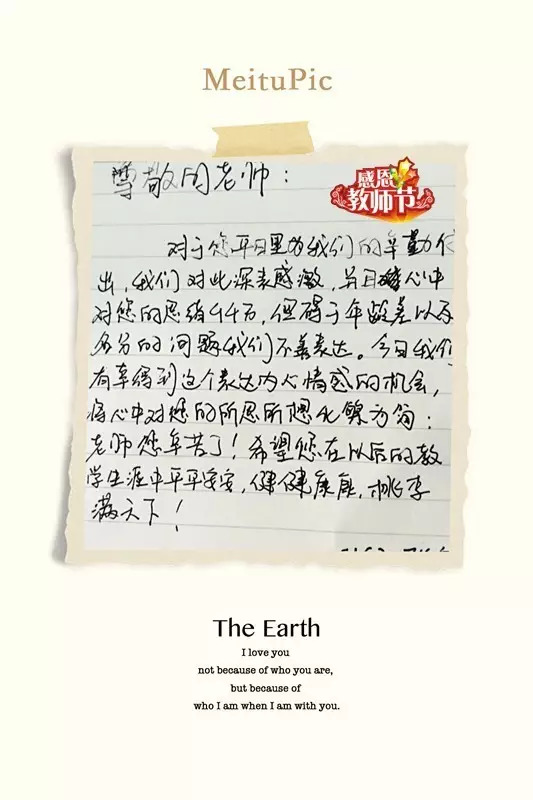 MeituPic
尊敬周老师：
感恩
教师节
对于您平日里为我们的辛勤付
出，我们对此深表感激，并且心中
对您的思绪千千万，但碍于年龄差以及
名分的问题我们不善表达。今日我们
有幸得到这个表达内心情感的机会，
将心中对您的所思所想化繁为简：
老师您辛苦了！希望您在以后的教
学生涯中平平安安，健健康康，桃李
满天下！
The Earth
I love you
not because of who you are,
but because of
who I am when I am with you.